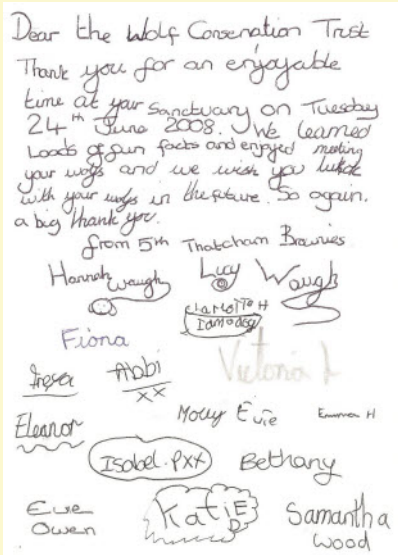 Dear the Wolf Conservation Trust
Thank you for an enjoyable
time at your Sanctuary on Tuesday
24th June 2008. We learned
Loads of fun facts and enjoyed meeting
your wolfs and we wish you
with your wolfs in the future. So again.
a big thank you.
from 5th Thatcham Brownies
Hannah Waugh Lucy Waugh
Charlotte H
Fiona
Victoria L
Abbi
xx
Eleanor Molly Evie Emma H
Isobel.Pxx Bethany
Eve Katie D Samantha
Owen Wood